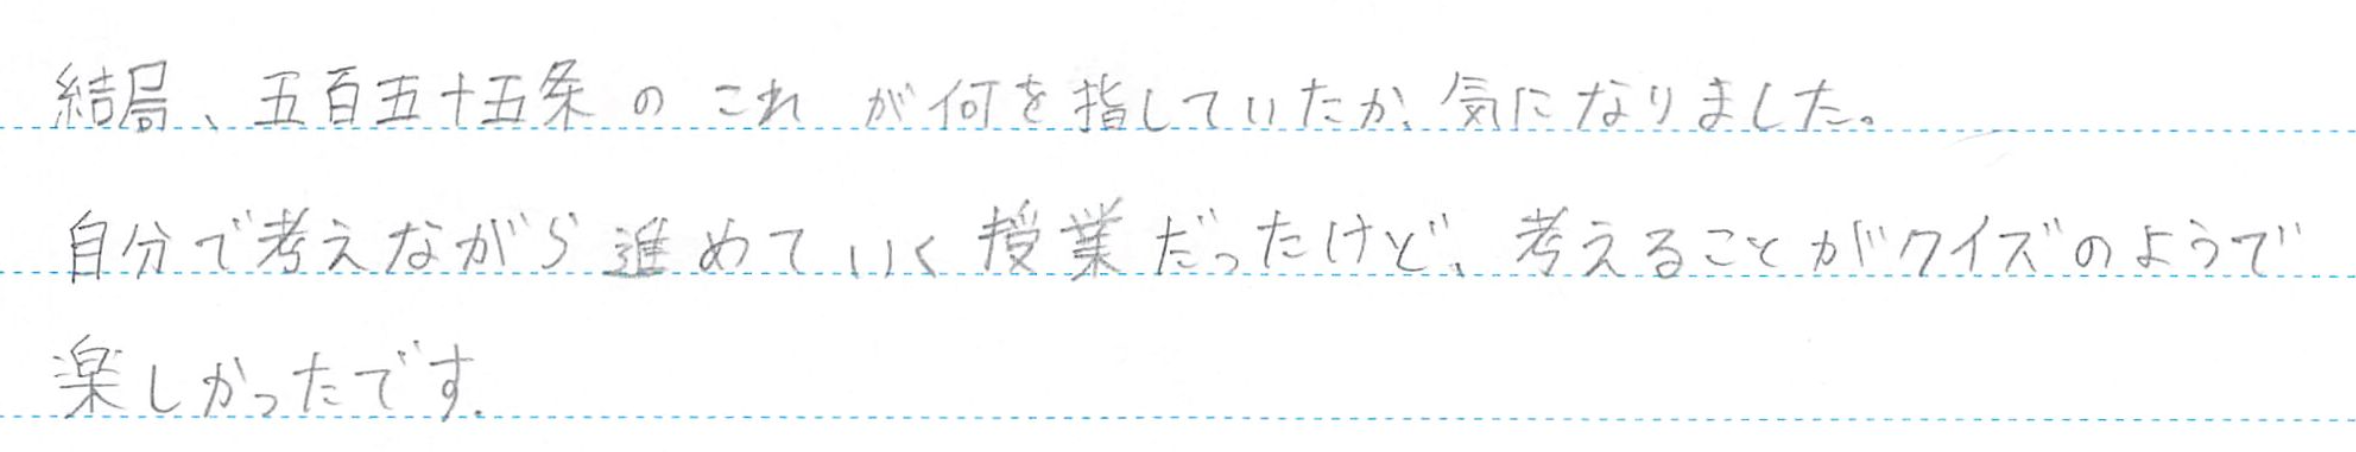 結局、五百五十五条の これ が何を指していたか、気になりました。
自分で考えながら進めていく授業だったけど、考えることがクイズのようで
楽しかったです.